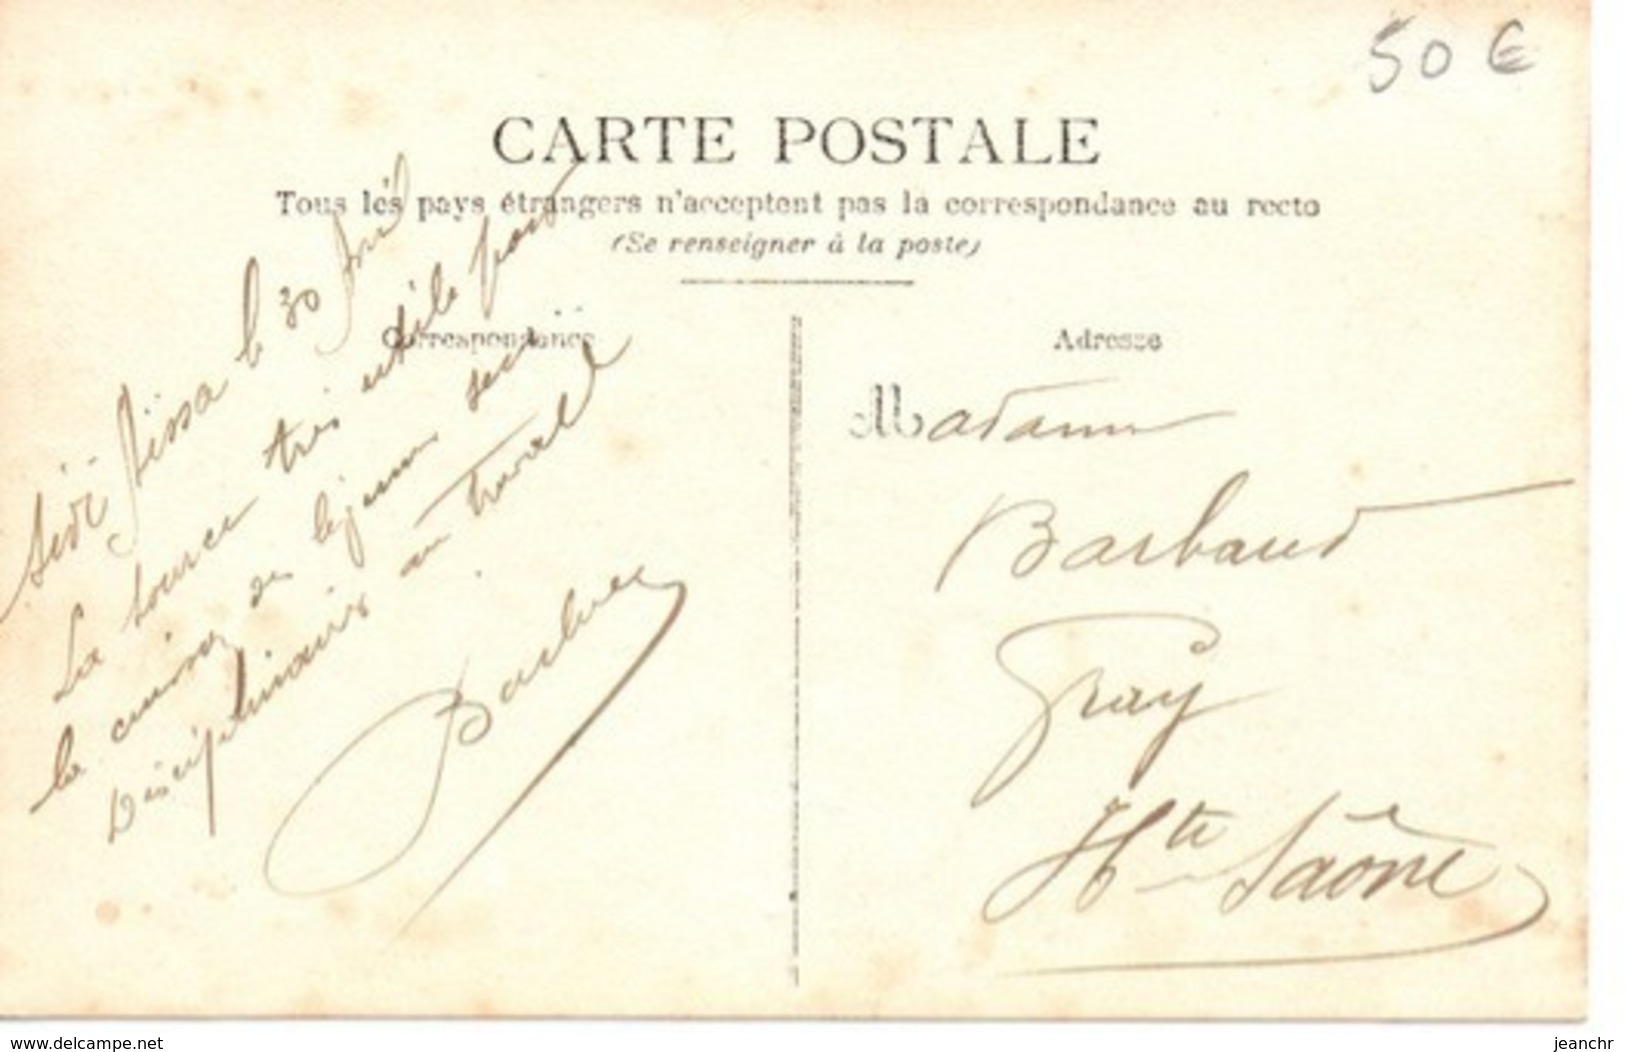 50 €
CARTE POSTALE
Tous les pays étrangers n'acceptent pas la correspondance au recto
(Se renseigner à la poste)
Correspondance
Sidi Aïssa le 30 Avril
La source très utile pour
la cuisine des légumes secs
Disciplinaires au travail
Adresse
Madame
Barbaud
Gray
Hte Saône
www.delcampe.net
jeanchr